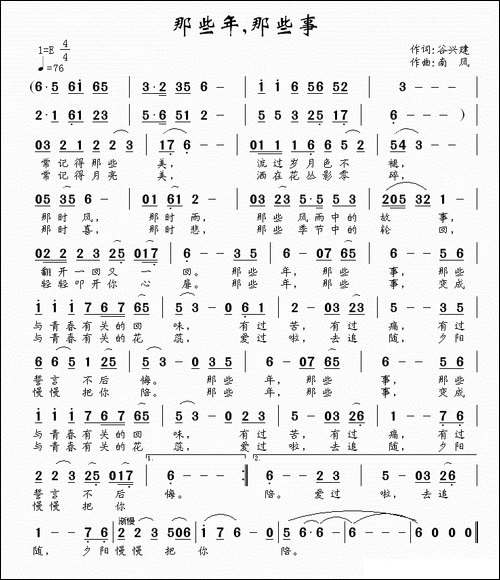 那些年,那些事
1=E 4/4
♩=76
作词:谷兴建
作曲:南 风
(6·5 61 65 | 3·2 35 6 - | i i 6 56 52 | 3 - - - |
2·1 61 23 | 5·6 51 2 - | 5 5 3 25 17 | 6 - - - )
03 21 2 2 3 | 17 6 - - | 01 1 1 6 6 5 2 | 54 3 - - |
常记得那些 美, 流过岁月色不 褪,
常记得月亮 美, 洒在花丛影零 碎,
05 35 6 - | 01 61 2 - | 03 23 5·5 5 3 | 205 32 1 - |
那时风, 那时雨, 那些风雨中的 故 事,
那时喜, 那时悲, 那些季节中的 轮 回,
02 2 2 3 25 017 | 6 - - 3 5 | 6 - 07 65 | 3 - - 3 5 | 6 - 56 |
翻开一回又 一 回。 那些 年, 那些 事, 那些
轻轻叩开你 心 扉。 那些 年, 那些 事, 变成
i i i 7 6 7 65 | 5 3 - 0 6 1 | 2 - 03 23 | 5 - - 3 5 |
与青春有关的回 味, 有过 苦, 有过 痛, 有过
与青春有关的花 蕊, 爱过 啦, 去追 随, 夕阳
6 6 5 1 25 | 5 3 - 03 5 | 6 - 07 65 | 3 - - 5 6 |
誓言 不后 悔。 那些 年, 那些 事, 那些
慢慢 把你 陪。 那些 年, 那些 事, 变成
i i i 7 6 7 65 | 5 3 - 02 3 | 5 - 03 26 | 1 - - 7 6 |
与青春有关的回 味, 有过 苦, 有过 痛, 有过
与青春有关的花 蕊, 爱过 啦, 去追 随, 夕阳
2 2 3 25 017 | 1. 6 - - - :| 2. 6 - - 2 3 | 5 - 03 26 |
誓言 不后 悔。 陪。 爱过 啦, 去追
慢慢 把你
渐慢
1 - - 7 6 | 2 2 3 506 | 6 - - 0 | 5 6·6· - | 6 - - - | 6 0 0 0 ‖
随, 夕阳 慢慢 把 你 陪。